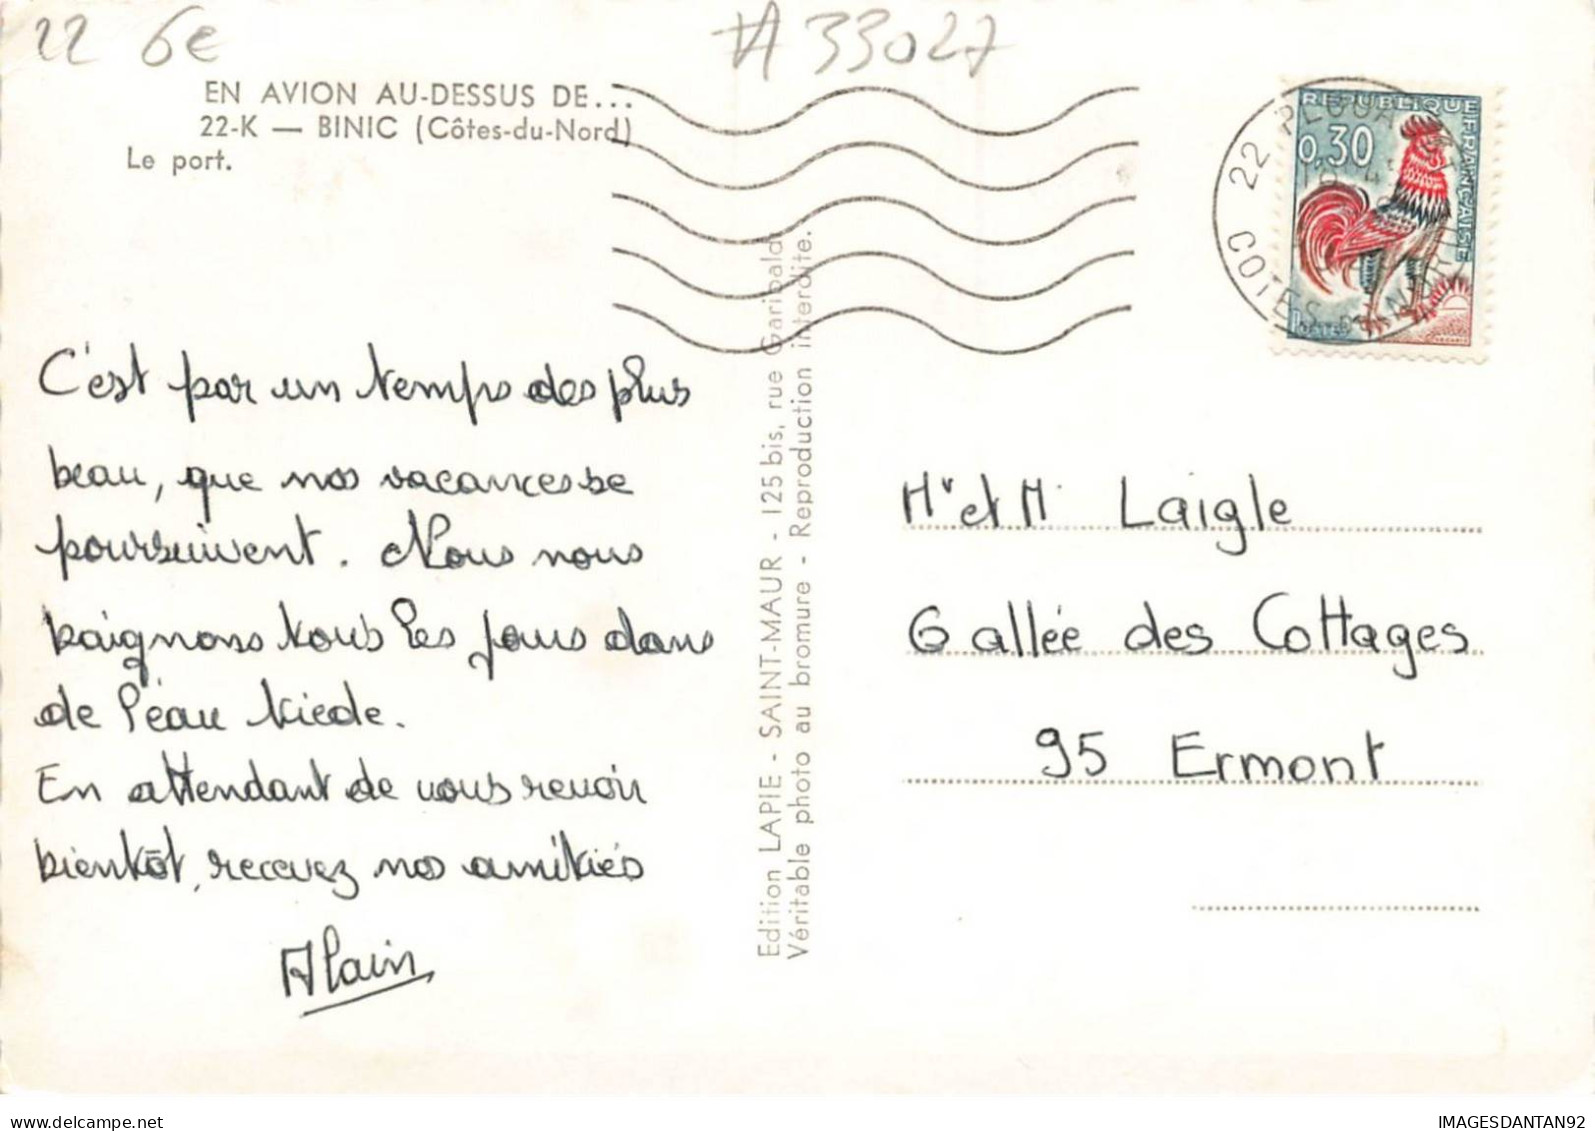 22 6€ #33027
EN AVION AU-DESSUS DE...
22-K — BINIC (Côtes-du-Nord)
Le port.
C'est par un temps des plus
beau, que nos vacances se
poursuivent. Nous nous
baignons tous les jours dans
de l'éau tiede.
En attendant de vous revoir
bientôt, recevez nos amitiés
Alain
Edition LAPIE - SAINT-MAUR - 125 bis, rue Garibaldi
Véritable photo au bromure - Reproduction interdite.
22 PLOUA
COTES DU NORD
REPUBLIQUE FRANÇAISE
0,30
POSTES
DECARIS
Mr et M Laigle
6 allée des Cottages
95 Ermont
IMAGESDANTAN92